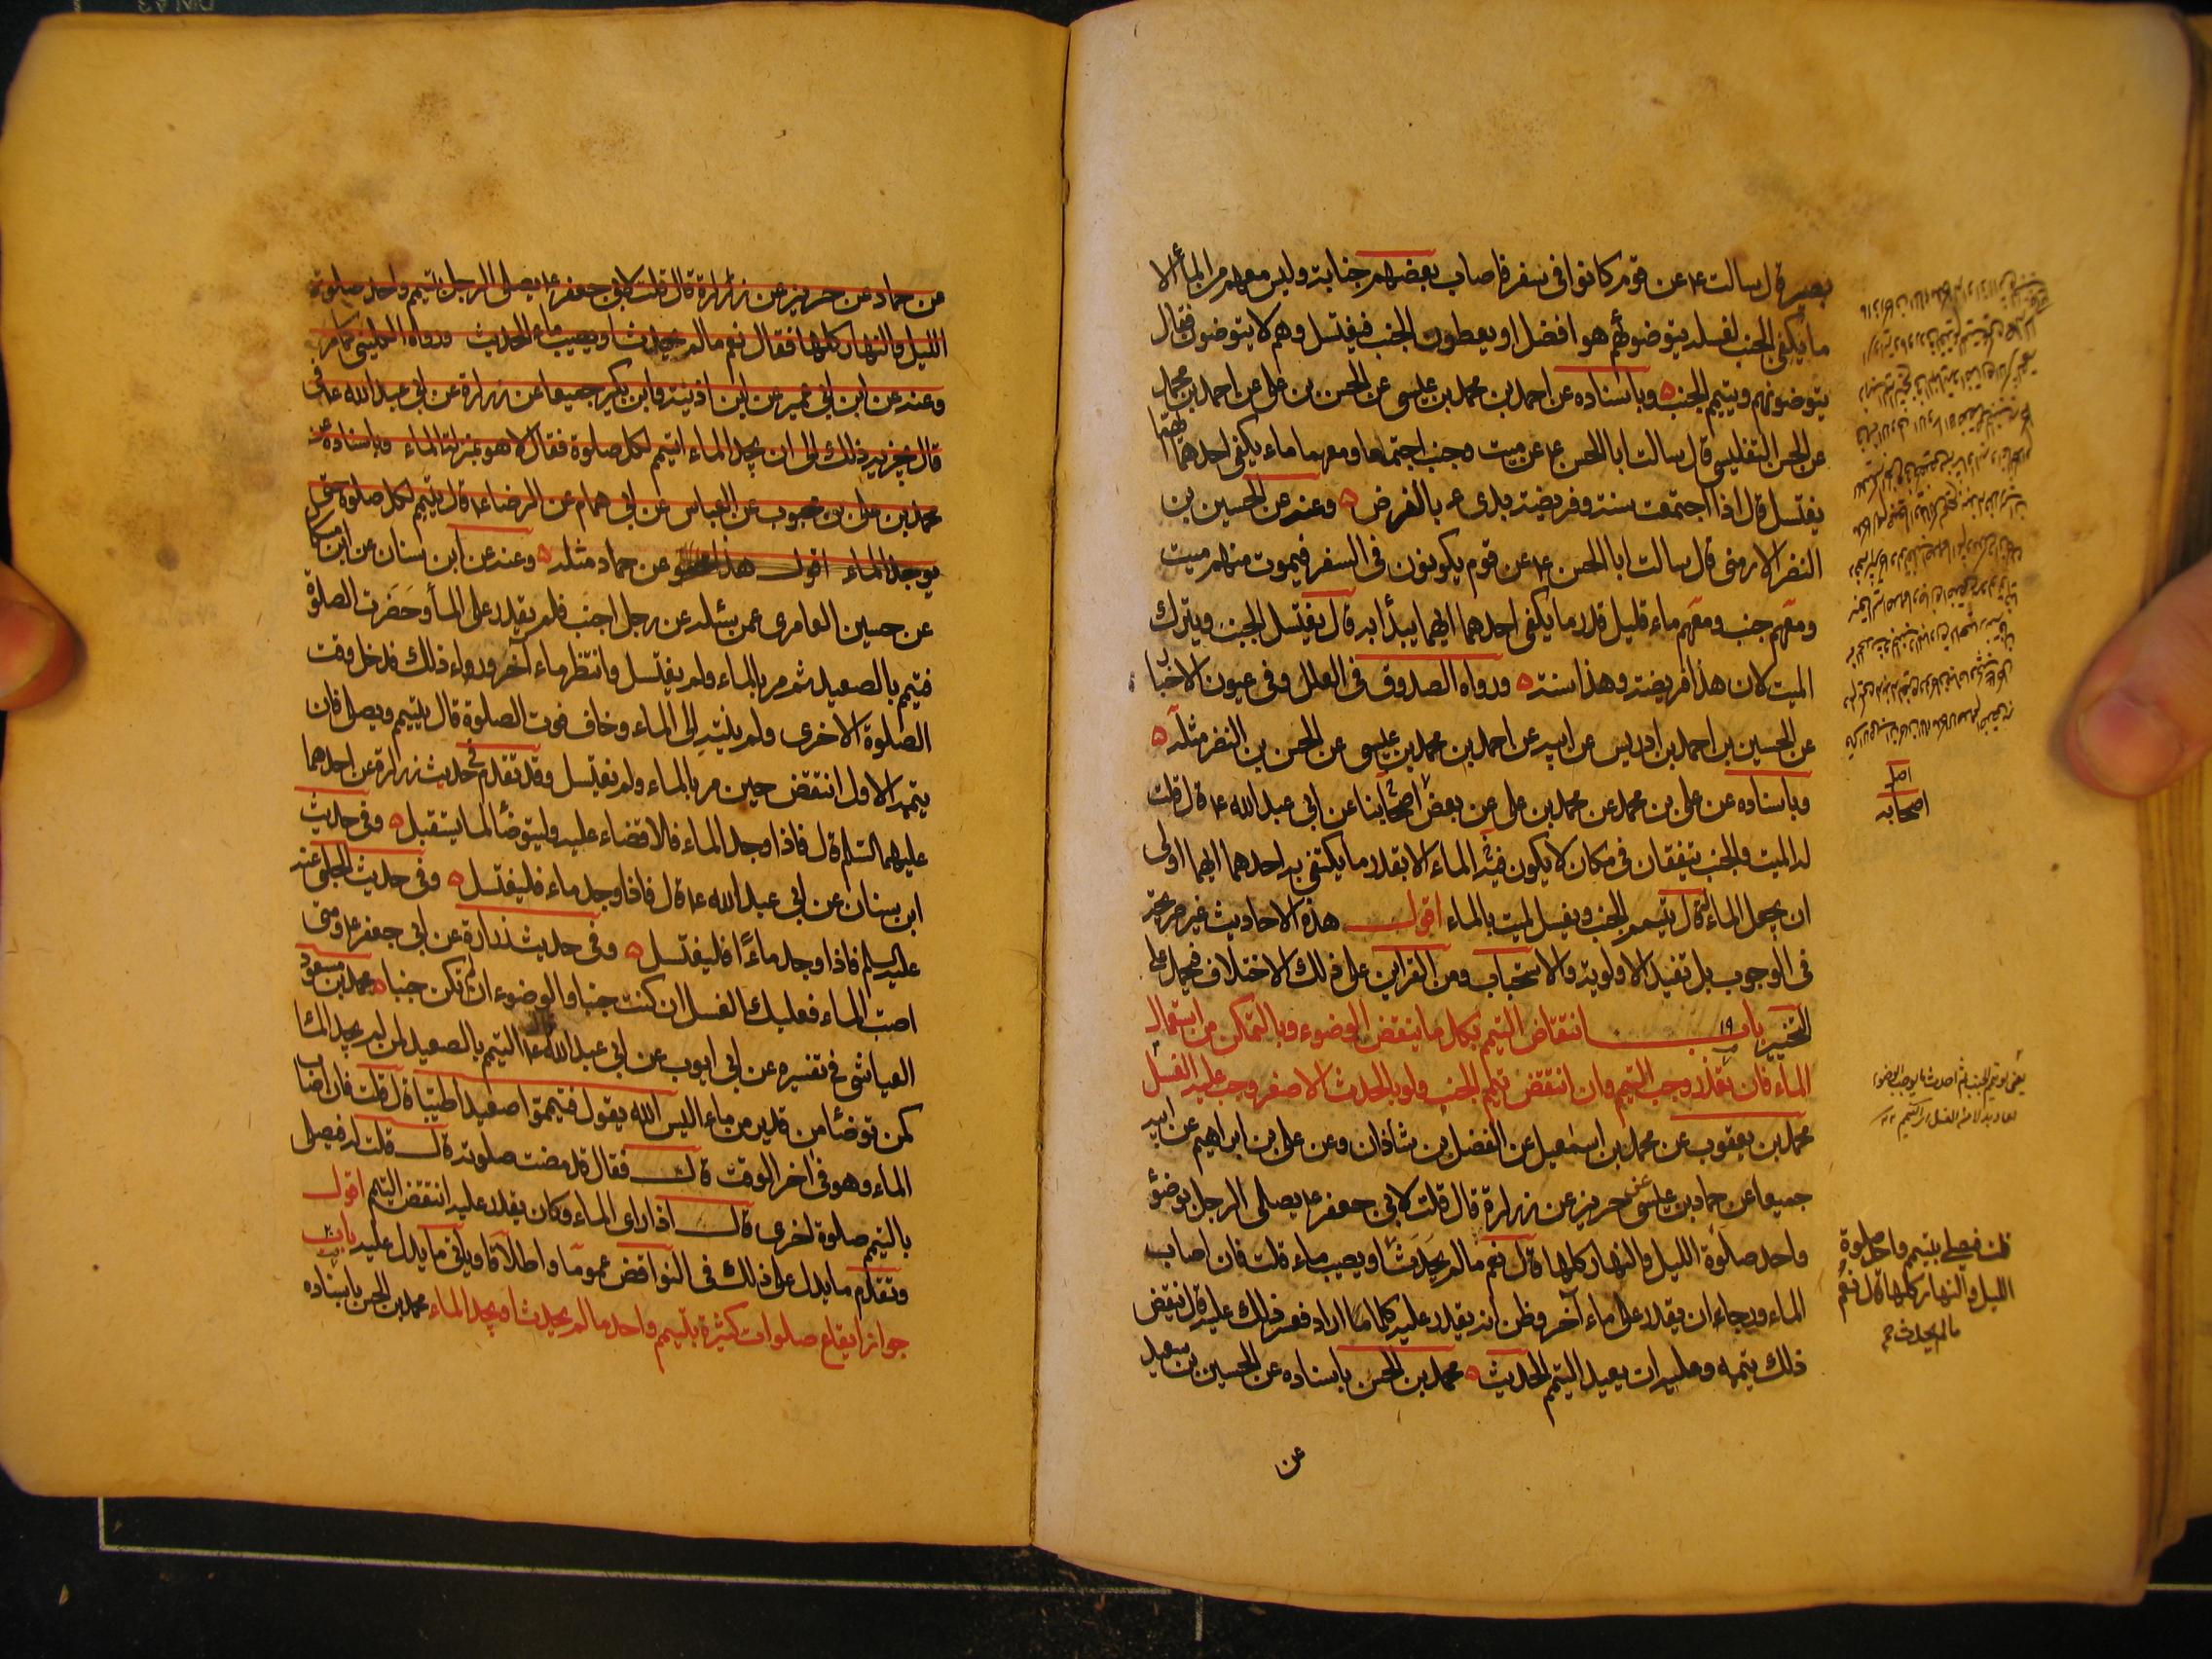 بصير قال سالت ع عن قوم كانوا فى سفر فاصاب بعضهم جنابة وليس معهم من الماء الا
ما يكفى الجنب لغسله يتوضؤن هم هو افضل او يعطون الجنب فيغتسل وهم لا يتوضؤن فقال
يتوضؤن هم ويتيمم الجنب وباسناده عن احمد بن محمد بن عيسى عن الحسن بن على عن احمد بن محمد
عن الحسن التفليسى قال سالت ابا الحسن ع عن ميت وجنب اجتمعا ومعهما ماء يكفى احدهما ايهما
يغتسل قال اذا اجتمعت سنة وفريضة بدئ بالفرض وعنه عن الحسين بن
النضر الارمنى قال سالت ابا الحسن ع عن قوم يكونون فى السفر فيموت منهم ميت
ومعهم جنب ومعهم ماء قليل قدر ما يكفى احدهما ايهما يبدأ به قال يغتسل الجنب ويترك
الميت لان هذا فريضة وهذا سنة ورواه الصدوق فى العلل وفى عيون الاخبار
عن الحسين بن احمد بن ادريس عن ابيه عن احمد بن محمد بن عيسى عن الحسن بن النضر مثله
وباسناده عن على بن محمد عن محمد بن على عن بعض اصحابنا عن ابى عبد الله ع قال قلت
له الميت والجنب يتفقان فى مكان لا يكون فيه الماء الا بقدر ما يكتفى به احدهما ايهما اولى
ان يجعل الماء له قال يتيمم الجنب ويغسل الميت بالماء اقول هذه الاحاديث غير صريحة
فى الوجوب بل تفيد الاولوية والاستحباب ومن القراين على ذلك الاختلاف فيحمل على
التخيير باب انتقاض التيمم بكل ما ينقض الوضوء وبالتمكن من استعمال
الماء فان تعذر وجب التيمم وان انتقض تيمم الجنب ولو بالحدث الاصغر وجب عليه الغسل
محمد بن يعقوب عن محمد بن اسمعيل عن الفضل بن شاذان وعن على بن ابراهيم عن ابيه
جميعا عن حماد بن عيسى عن حريز عن زرارة قال قلت لابى جعفر ع يصلى الرجل بوضوء
واحد صلوة الليل والنهار كلها قال نعم ما لم يحدث او يصيب ماء قلت فان اصاب
الماء ورجاء ان يقدر على ماء آخر وظن انه يقدر عليه كلما اراد فعسر ذلك عليه قال ينقض
ذلك تيممه وعليه ان يعيد التيمم الحديث محمد بن الحسن باسناده عن الحسين بن سعيد
عن
اصحابه
يعنى لو تيمم الجنب ثم احدث ما يوجب الوضوء
قلت فيصلى بتيمم واحد صلوة
الليل والنهار كلها قال نعم
ما لم يحدث
عن حماد عن حريز عن زرارة قال قلت لابى جعفر ع يصلى الرجل بتيمم واحد صلوة
الليل والنهار كلها فقال نعم ما لم يحدث او يصيب ماء الحديث ورواه الكلينى كما مر
وعنه عن ابن ابى عمير عن ابن اذينة وابن بكير جميعا عن زرارة عن ابى عبد الله ع فى
محمد بن على بن محبوب عن العباس عن ابى همام عن الرضا ع قال يتيمم لكل صلوة حتى
يوجد الماء اقول هذا عن حماد مثله وعنه عن ابن سنان عن ابن مسكان
عن حسين العامرى عمن سئله عن رجل اجنب فلم يقدر على الماء وحضرت الصلوة
فتيمم بالصعيد ثم مر بالماء ولم يغتسل وانتظر ماء آخر وراء ذلك فدخل وقت
الصلوة الاخرى ولم ينته الى الماء وخاف فوت الصلوة قال يتيمم ويصل فان
تيممه الاول انتقض حين مر بالماء ولم يغتسل وقد تقدم فى حديث زرارة عن احدهما
عليهما السلم قال فاذا وجد الماء فلا قضاء عليه وليتوضأ لما يستقبل وفى حديث
ابن سنان عن ابى عبد الله ع قال فاذا وجد ماء فليغتسل وفى حديث الحلبى عنه
عليه السلم فاذا وجد ماءً فليغتسل وفى حديث زرارة عن ابى جعفر ع ومتى
اصبت الماء فعليك الغسل ان كنت جنبا والوضوء ان لم تكن جنبا محمد بن مسعود
العياشى فى تفسيره عن ابى ايوب عن ابى عبد الله ع قال التيمم بالصعيد لمن لم يجد الماء
كمن توضأ من غدير من ماء اليس الله يقول فتيمموا صعيدا طيبا قال قلت فان اصاب
الماء وهو فى اخر الوقت قال فقال قد مضت صلوته قال قلت له فيصلى
بالتيمم صلوة اخرى قال اذا راى الماء وكان يقدر عليه انتقض التيمم اقول
وتقدم ما يدل على ذلك فى النواقض عموما واطلاقا وياتى ما يدل عليه باب
جواز ايقاع صلوات كثيرة بتيمم واحد ما لم يحدث او يجد الماء محمد بن الحسن باسناده